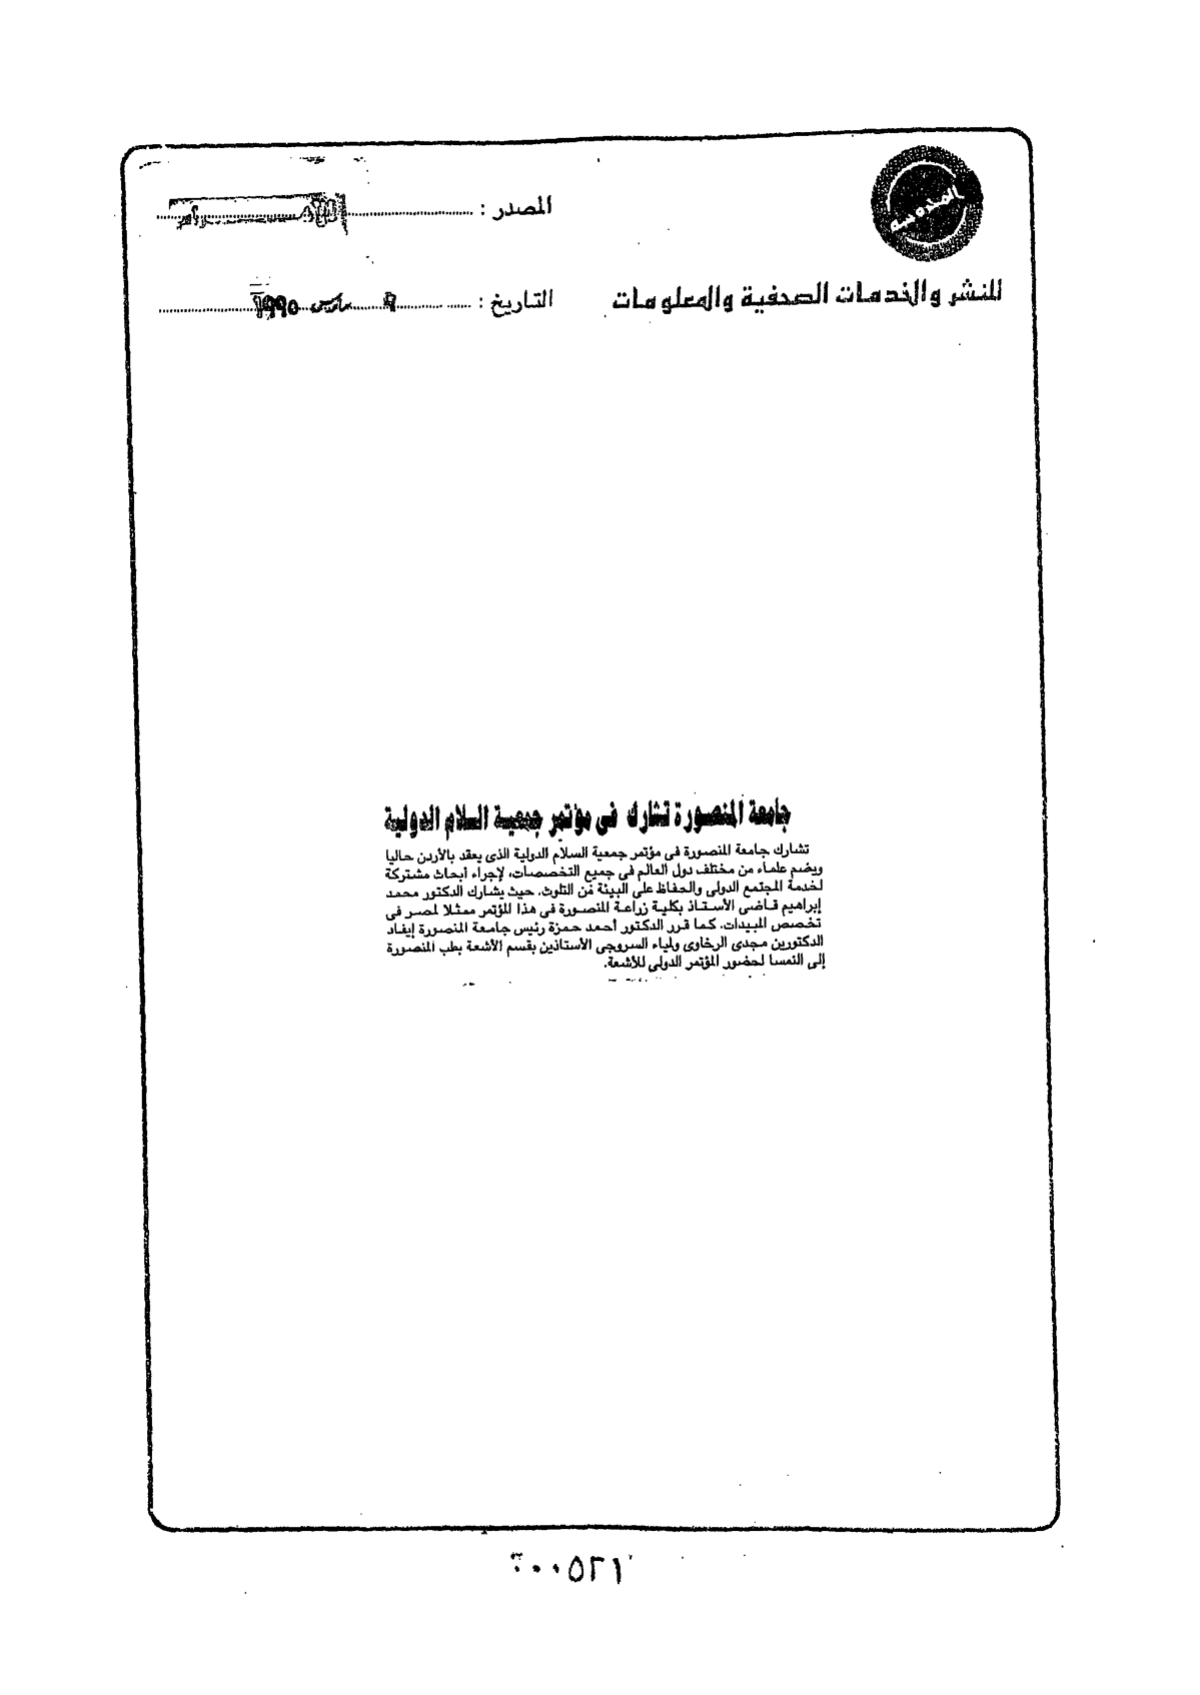 المصدر :
للنشر والخدمات الصحفية والمعلومات
التاريخ : مارس ١٩٩٥
جامعة المنصورة تشارك فى مؤتمر جمعية السلام الدولية
تشارك جامعة المنصورة فى مؤتمر جمعية السلام الدولية الذى يعقد بالأردن حاليا
ويضم علماء من مختلف دول العالم فى جميع التخصصات، لإجراء أبحاث مشتركة
لخدمة المجتمع الدولى والحفاظ على البيئة من التلوث. حيث يشارك الدكتور محمد
إبراهيم قاضى الأستاذ بكلية زراعة المنصورة فى هذا المؤتمر ممثلا لمصر فى
تخصص المبيدات. كما قرر الدكتور أحمد حمزة رئيس جامعة المنصورة إيفاد
الدكتورين مجدى الرخاوى ولمياء السروجى الأستاذين بقسم الأشعة بطب المنصورة
إلى النمسا لحضور المؤتمر الدولى للأشعة.